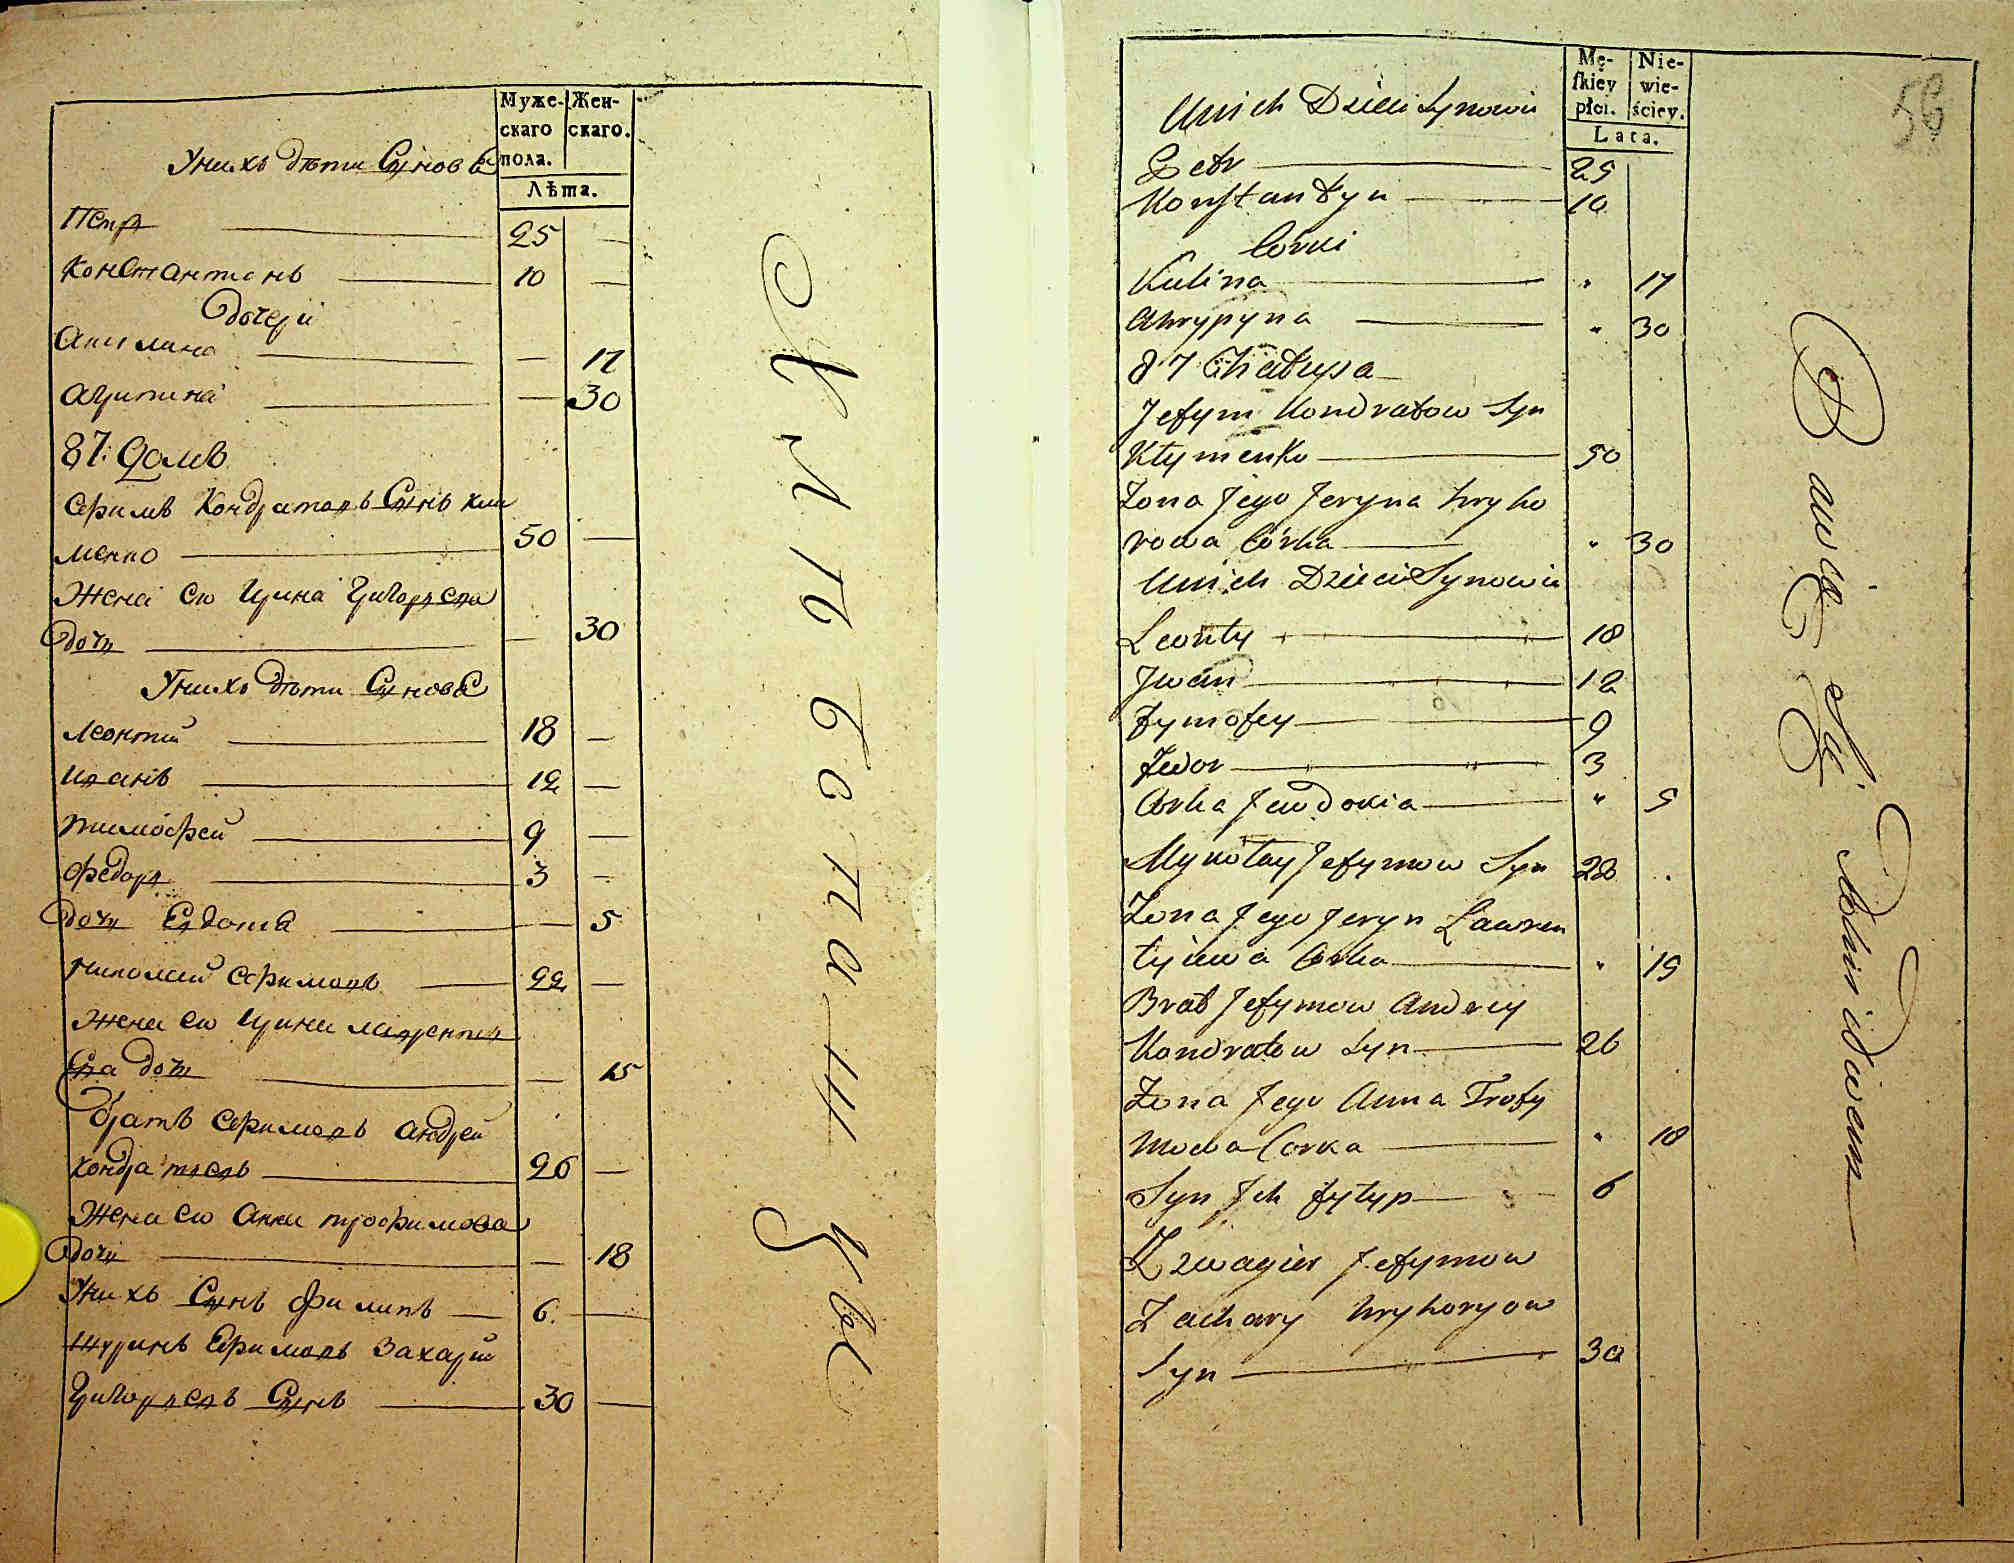 Муже-
скаго
пола.
Жен-
скаго.
Лѣта.
Унихъ дѣти Сынове
Петръ 25 —
Константинъ 10 —
дочери
Акилина — 17
Агрипина — 30
87. Домъ
Ефимъ Кондратовъ Сынъ Кли
менко 50 —
Жена его Ирина Григорьева
дочь — 30
Унихъ дѣти Сынове
Леонтий 18 —
Иванъ 12 —
Тимофей 9 —
Федоръ 3 —
дочь Евдокия — 5
Николай Ефимовъ 22 —
Жена его Ирина Лаврентъ
ева дочь — 15
братъ Ефимовъ Андрей
Кондратовъ 26 —
Жена его Анна Трофимова
дочь — 18
Унихъ Сынъ Филипъ 6. —
Шуринъ Ефимовъ Захарий
Григорьевъ Сынъ 30 —
Mę-
skiey
płci.
Nie-
wie-
ściey.
Lata.
56
Unich Dzieci Synowie
Petr 25
Konstantyn 10
Corki
Kulina " 17
Ahrypyna " 30
87 Chałupa
Jefym Kondratow Syn
Kłymenko 50
Żona Jego Jeryna Hryho
rowa Córka " 30
Unich Dzieci Synowie
Leonty 18
Jwan 12
Tymofey 9
Fedor 3
Corka Jewdokia " 5
Mykołay Jefymow Syn 22 .
Żona Jego Jeryn Lawren
tyiewa Corka " 15
Brat Jefymow Andrey
Kondratow Syn 26
Żona Jego Anna Trofy
mowa Corka " 18
Syn Jch Fyłyp 6
Szwagier Jefymow
Zachary Hryhoryow
Syn 30